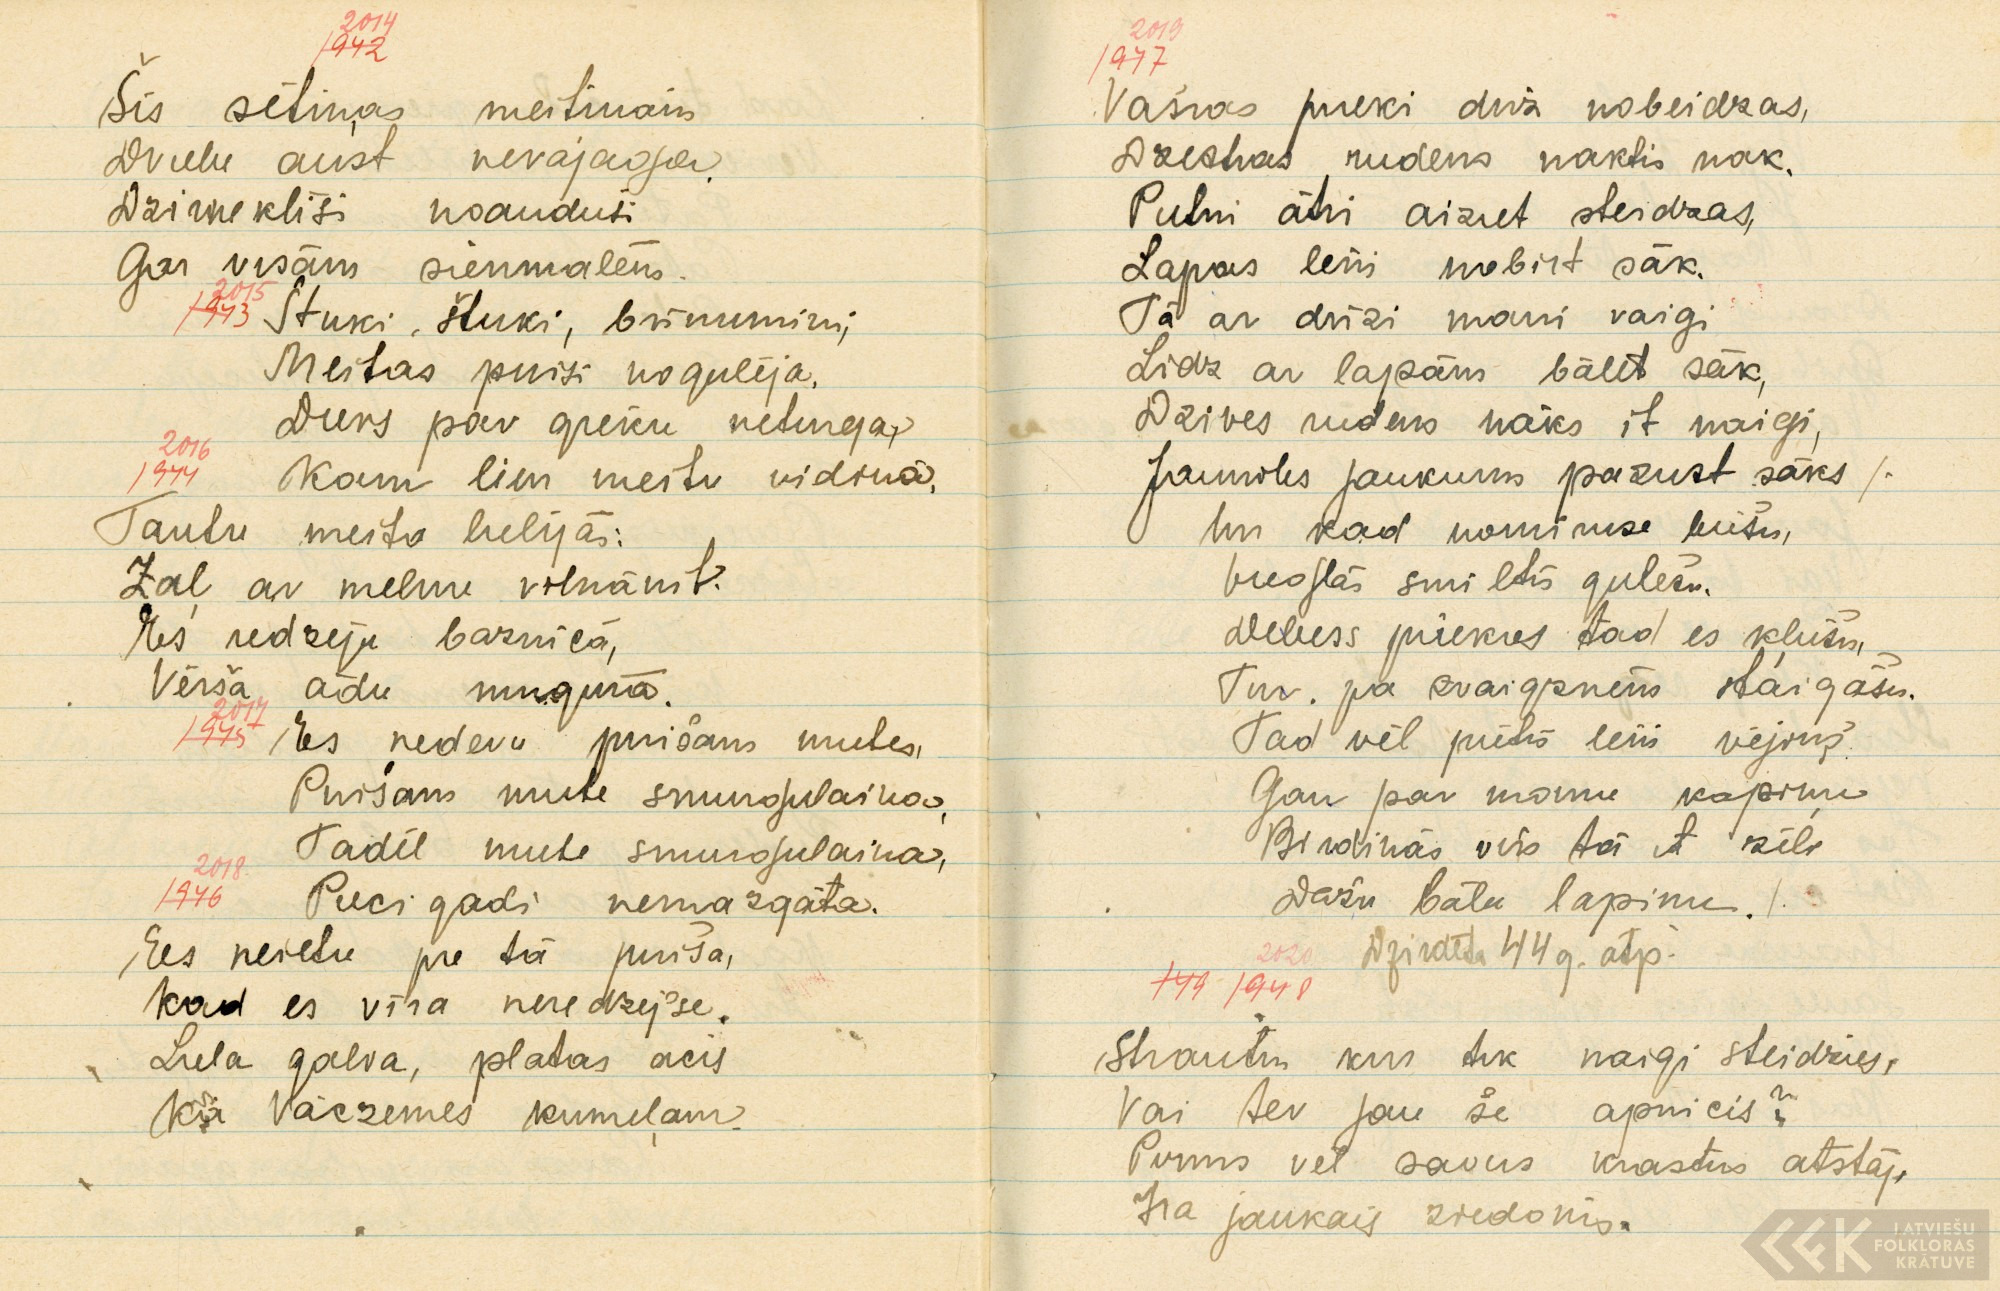 2014
1942
Šis sētiņas meitiņām
Drēbu aust nevajaga.
Dzirnekliši noauduši
Gar visām sienmalēm.
2015
1943
Štuki, štuki, brīnumiņi,
Meitas puisi nogulēja.
Dievs par grēku neturēja,
2016
1944
Kam lien meitu vidiņā.
Tautu meita lielijās:
Zaļ ar melnu vilnānit.
Es redzeju baznicā,
Vērša ādu mugurā.
2017
1945
Es nedevu puišam mutes,
Puišam mute smurgulaina,
Tadēl mute smurgulaina,
2018
1946
Pieci gadi nemazgāta.
Es neietu pie tā puiša,
Kad es vīra neredzejse.
Liela galva, platas acis
Kā Vāczemes kumeļam.
2019
1947
Vasras prieki driz nobeidzas,
Dzestras rudens naktis nak.
Putni ātri aiziet steidzas,
Lapas lēni nobirt sāk.
Tā ar drīzi mani vaigi
Lidz ar lapām bālēt sāk,
Dzives rudens nāks it naigi,
Jaunibs jaukums pazust sāks /.
Un kad nomiruse būšu,
Vieglās smiltīs gulešu.
Debess priekus tad es kļūšu,
Tur pa zvaigznēm staigāšu.
Tad vēl pūtīs lēni vējiņš
Gan par manu kapiņu
Birdinās viņš tā it zēli
Dažu bālu lapiņu. /.
Dzirdēta 44 g. atp.
2020
149 1948
Strautiņ kur tik naigi steidzies,
Vai tev jau še apnicis?
Pirms vēl savus krastus atstāj,
Ira jaukais ziedonis.
LATVIEŠU
FOLKLORAS
KRĀTUVE